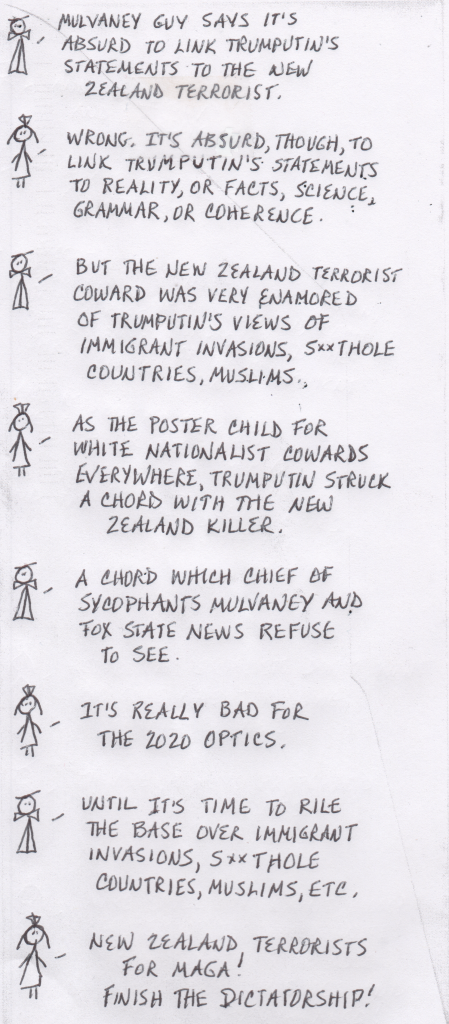 MULVANEY GUY SAYS IT'S
ABSURD TO LINK TRUMPUTIN'S
STATEMENTS TO THE NEW
ZEALAND TERRORIST.
WRONG. IT'S ABSURD, THOUGH, TO
LINK TRUMPUTIN'S STATEMENTS
TO REALITY, OR FACTS, SCIENCE,
GRAMMAR, OR COHERENCE.
BUT THE NEW ZEALAND TERRORIST
COWARD WAS VERY ENAMORED
OF TRUMPUTIN'S VIEWS OF
IMMIGRANT INVASIONS, S**THOLE
COUNTRIES, MUSLIMS..
AS THE POSTER CHILD FOR
WHITE NATIONALIST COWARDS
EVERYWHERE, TRUMPUTIN STRUCK
A CHORD WITH THE NEW
ZEALAND KILLER.
A CHORD WHICH CHIEF OF
SYCOPHANTS MULVANEY AND
FOX STATE NEWS REFUSE
TO SEE.
IT'S REALLY BAD FOR
THE 2020 OPTICS.
UNTIL IT'S TIME TO RILE
THE BASE OVER IMMIGRANT
INVASIONS, S**THOLE
COUNTRIES, MUSLIMS, ETC.
NEW ZEALAND TERRORISTS
FOR MAGA!
FINISH THE DICTATORSHIP!